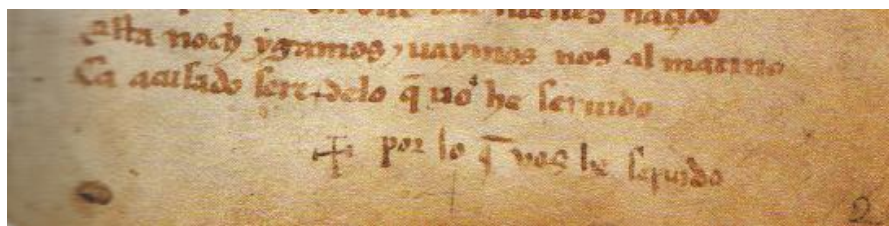 naçido
Esta noch ygamos ⁊ uaymos nos al matino
Ca acusado sere + delo q̄ uos he seruido
+ por lo q̄ vos he seruido
2